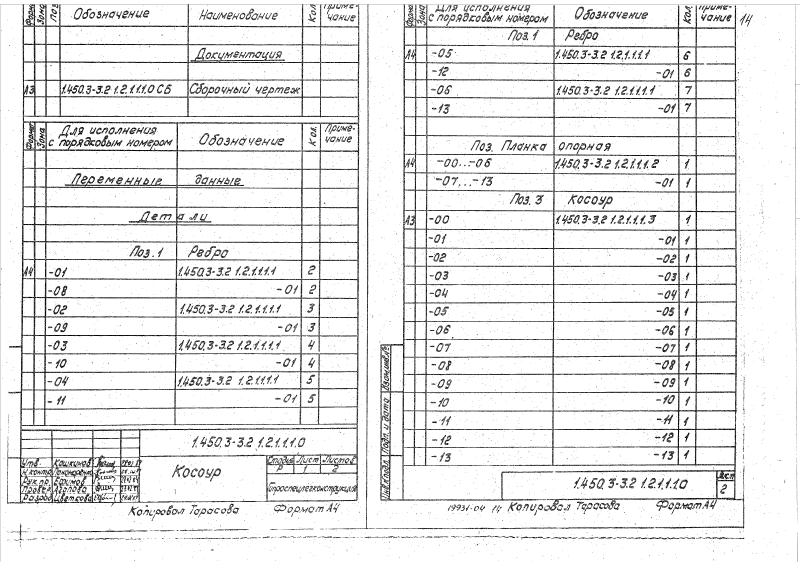 Форм. Зона Поз. Обозначение Наименование Кол. Приме-чание
Документация
А3 1.450.3-3.2 1.2.1.1.1.0 СБ Сборочный чертеж
Формат Зона Для исполнения с порядковым номером Обозначение Кол. Приме-чание
Переменные данные
Детали
Поз. 1 Ребро
А4 -01 1.450.3-3.2 1.2.1.1.1.1 2
-08 -01 2
-02 1.450.3-3.2 1.2.1.1.1.1 3
-09 -01 3
-03 1.450.3-3.2 1.2.1.1.1.1 4
-10 -01 4
-04 1.450.3-3.2 1.2.1.1.1.1 5
-11 -01 5
1.450.3-3.2 1.2.1.1.1.0
Утв. Кошкинов
Н.контр.
Рук.пр. Ефимов
Провер.
Разраб. Цветкова
Косоур
Стадия Лист Листов
Р 1 2
Гипроспецлегконструкция
Копировал Тарасова Формат А4
14
Форм. Зона Для исполнения с порядковым номером Обозначение Кол. Приме-чание
Поз. 1 Ребро
А4 -05 1.450.3-3.2 1.2.1.1.1.1 6
-12 -01 6
-06 1.450.3-3.2 1.2.1.1.1.1 7
-13 -01 7
Поз. Планка опорная
А4 -00...-06 1.450.3-3.2 1.2.1.1.1.2 1
-07...-13 -01 1
Поз. 3 Косоур
А3 -00 1.450.3-3.2 1.2.1.1.1.3 1
-01 -01 1
-02 -02 1
-03 -03 1
-04 -04 1
-05 -05 1
-06 -06 1
-07 -07 1
-08 -08 1
-09 -09 1
-10 -10 1
-11 -11 1
-12 -12 1
-13 -13 1
Инв.№подл. Подп. и дата Взам.инв.№
1.450.3-3.2 1.2.1.1.1.0
Лист
2
19931-04 14 Копировал Тарасова Формат А4